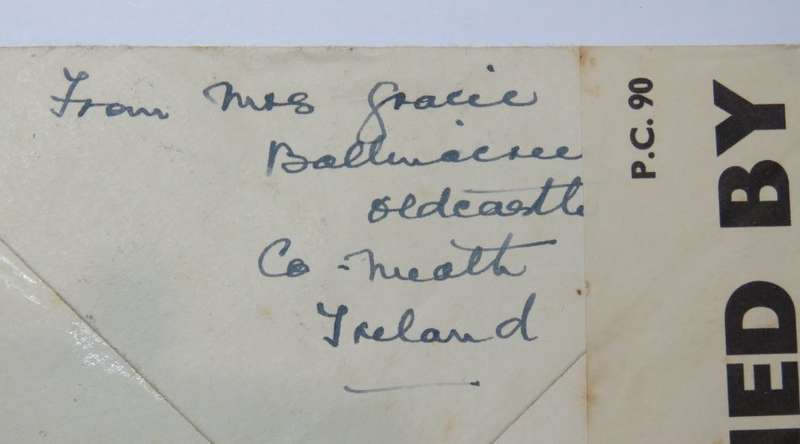 From Mrs Gracie
Ballinacree
Oldcastle
Co - Meath
Ireland
P.C. 90
ED BY